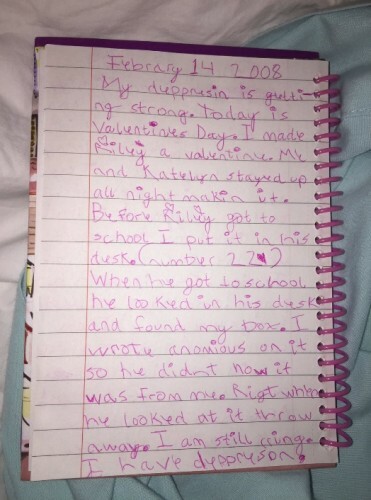 Febrary 14 2008
My deppresin is gutti-
ng strong. Today is
Valentines Day. I made
Riley a valintine. Me
and Katelyn stayed up
all night makin it.
Before Riley got to
school I put it in his
desk. (number 22)
When he got to school
he looked in his desk
and found my box. I
wrote anomious on it
so he didnt now it
was from me. Rigt when
he looked at it throw
away. I am still criing.
I have deppreson.